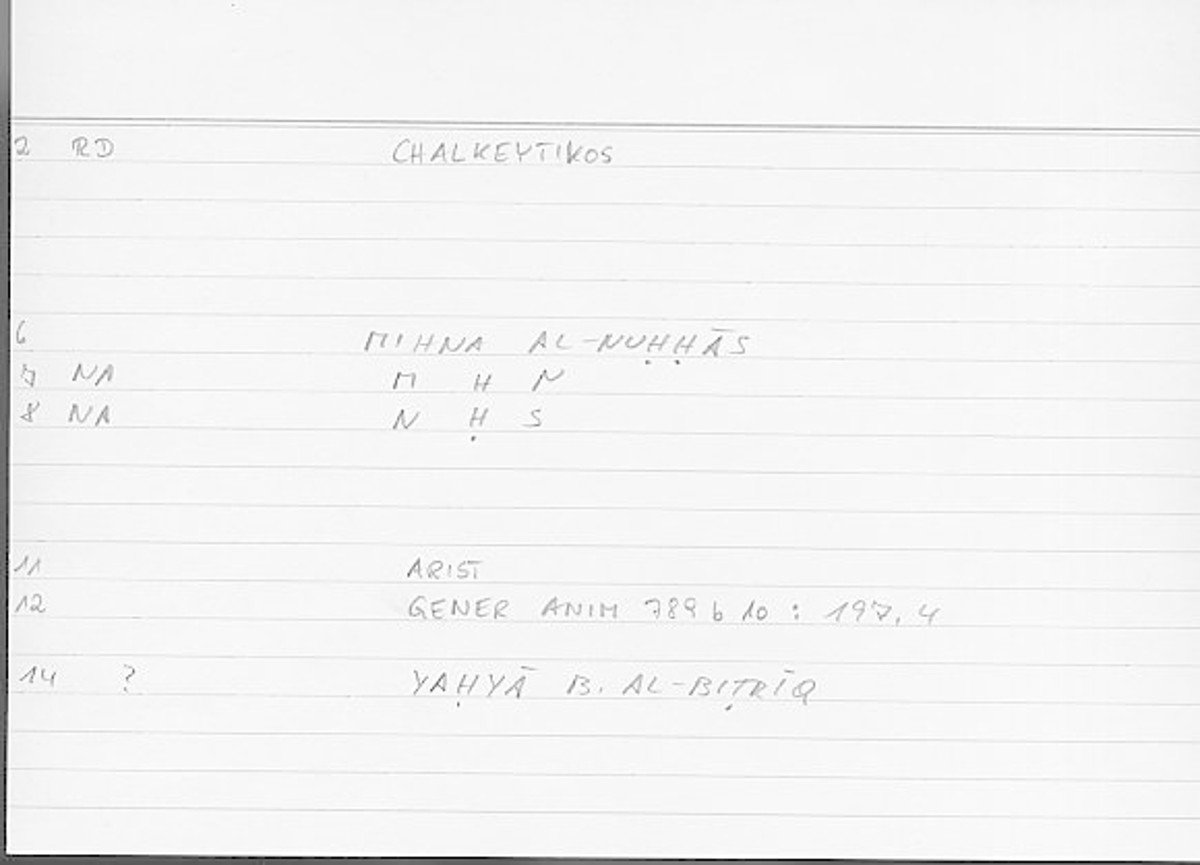 2 RD CHALKEYTIKOS
6 MIHNA AL-NUḤḤĀS
7 NA M H N
8 NA N Ḥ S
11 ARIST
12 GENER ANIM 789 b 10 : 197, 4
14 ? YAḤYĀ B. AL-BIṬRĪQ